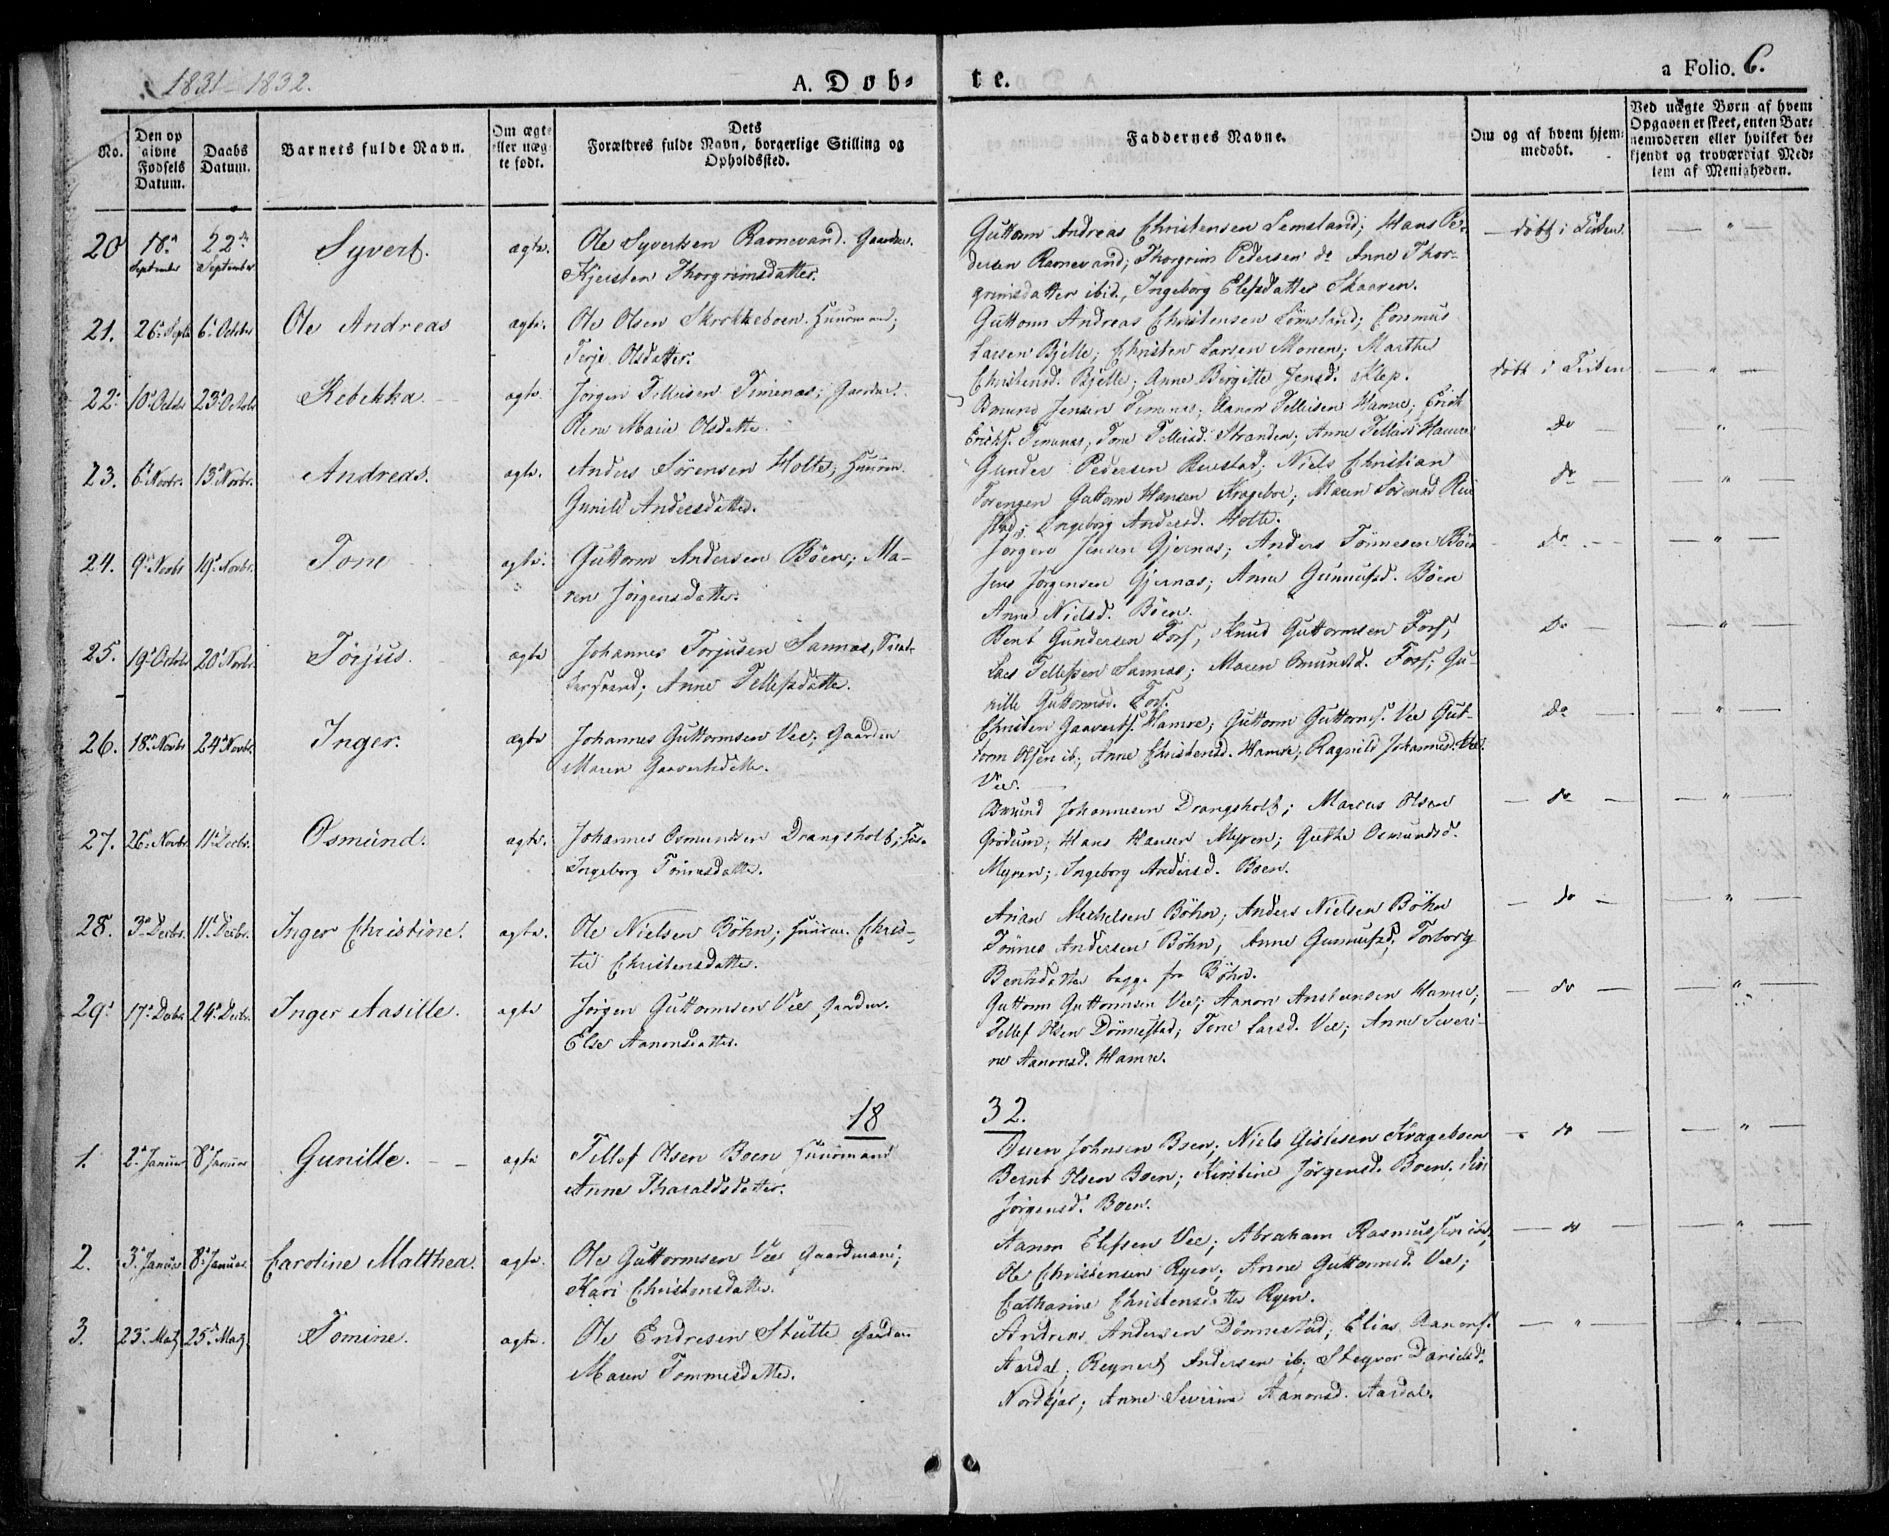 1831-1832.
A. Döb-
te.
a Folio. 6.
No.
Den op
givne
Fødsels
Datum.
Daabs
Datum.
Barnets fulde Navn.
Om ægte
eller uæg
te født.
Dets
Forældres fulde Navn, borgerlige Stilling og
Opholdssted.
Faddernes Navne.
Om og af hvem hjem-
medøbt.
Ved uægte Børn af hvem
Opgaven er skeet, enten Bar-
nemoderen eller hvilket be-
kjendt og troværdigt Med-
lem af Menigheden.
20 18de September 22de September Syvert. ægte. Ole Syvertsen Ravnevand. Gaardm.
Kjersten Thorgrimsdatter.
Guttorm Andreas Christensen Lømsland; Hans Pe-
dersen Ravnevand; Thorgrim Pedersen do Anne Thor-
grimsdatter ibid, Ingeborg Elefsdatter Skaaren.
døbt i Kirken.
21. 26. Septb 6. October Ole Andreas ægte. Ole Olsen Skrokkeboen. Huusmand;
Terje Olsdatter.
Guttorm Andreas Christensen Lömsland;
Larsen Bjelle; Christen Larsen Monen; Marthe
Christensd. Bjelle; Anne Birgitte Jensd. Klep.
døbt i Kirken
22. 10. Octobr 23. Octobr Rebekka. ægte. Jörgen Tellefsen Timenes; Gaardm.
Marie Olsdatter.
Osmund Jensen Timenes; Aanon Tellefsen Hamre; Erich
Erichs. Timenes; Tone Tellefsd. Stranden; Anne Tellefsd Hamre
Do
23. 6. Novbr. 13. Novbr. Andreas. ægte. Anders Sørensen Holte; Huusm.
Gunild Andersdatter.
Gunder Pedersen Revstad; Niels Christian
Torengen Guttorm Hansen Krageboe; Maren Sørensd
stad; Ingeborg Andersd. Holte.
Do
24. 9. Novbr 19. Novbr. Tone ægte. Guttorm Andersen Böen; Ma-
ren Jörgensdatter.
Jörgen Jensen Gjernæs; Anders Tönnesen Böen
Jens Jörgensen Gjernæs; Anne Gunnufsd. Böen
Anne Nielsd. Böen.
Do
25. 19. Octobr 20. Novbr. Torjus. ægte Johannes Torjusen Sannæs,
Anne Tellefsdatter.
Bent Gundersen Fors, Knud Guttormsen Fors,
Lars Tellefsen Sannæs; Maren Omundsd. Fors; Gu-
nille Guttormsd. Fors.
Do
26. 18. Novbr 24. Novbr Inger. ægte Johannes Guttormsen Vee; Gaardm
Maren Gaavertsdatter.
Christen Gaaverts. Hamre; Guttorm Guttorms. Vee Gut-
torm Olsen ib; Anne Christensd. Hamre; Ragnild Johannesd.
Vee.
Do
27. 26. Novbr 11. Decbr. Osmund. ægte. Johannes Osmundsen Drangsholt;
Ingeborg Tönnesdatter.
Osmund Johannesen Drangsholt; Marcus Olsen
Grødum; Hans Hansen Myren; Guthe Osmundsd.
Myren; Ingeborg Andersd. Boen.
do
28. 3. Decbr. 11. Decbr. Inger Christine. ægte. Ole Nielsen Böhn; Huusm. Chris-
ti Christensdatter.
Arian Michelsen Böhn; Anders Nielsen Böhn
Tönnes Andersen Böhn, Anne Gunnufsd, Torborg
Bentsdatter begge fra Böhn.
do
29. 17. Decbr 26. Decbr. Inger Aasille. ægte Jörgen Guttormsen Vee Gaardm.
Else Aanonsdatter.
Guttorm Guttormsen Vee; Aanon Anstensen Hamre;
Tellef Olsen Dönnestad; Tone Larsd. Vee; Anne Severi-
ne Aanonsd. Hamre.
do
18
32.
1. 2. Januar 8. Januar Gunille. ægte Tellef Olsen Boen Huusmand
Anne Tharaldsdatter.
Johnsen Boen; Niels Gislesen Krageboen
Bernt Olsen Boen; Kirstine Jörgensd. Boen.
Jörgensd. Boen.
do
2. 3. Januar 8. Januar Caroline Malthea ægte. Ole Guttormsen Vee Gaardmand;
Kari Christensdatter.
Aanon Elefsen Vee; Abraham Rasmussen ibd,
Ole Christensen Ryen; Anne Guttormsd. Vee;
Catharine Christensdatter Ryen.
do
3. 23. Matz 25. Matz Tomine. ægte. Ole Endresen Stutte Gaardm.
Maren Tommesdatter.
Andreas Andersen Dönnestad; Elias Aanons.
Aardal; Reynert Andersen ib; Siegvor Danielsd.
Nordkjær; Anne Severine Aanonsd. Aardal.